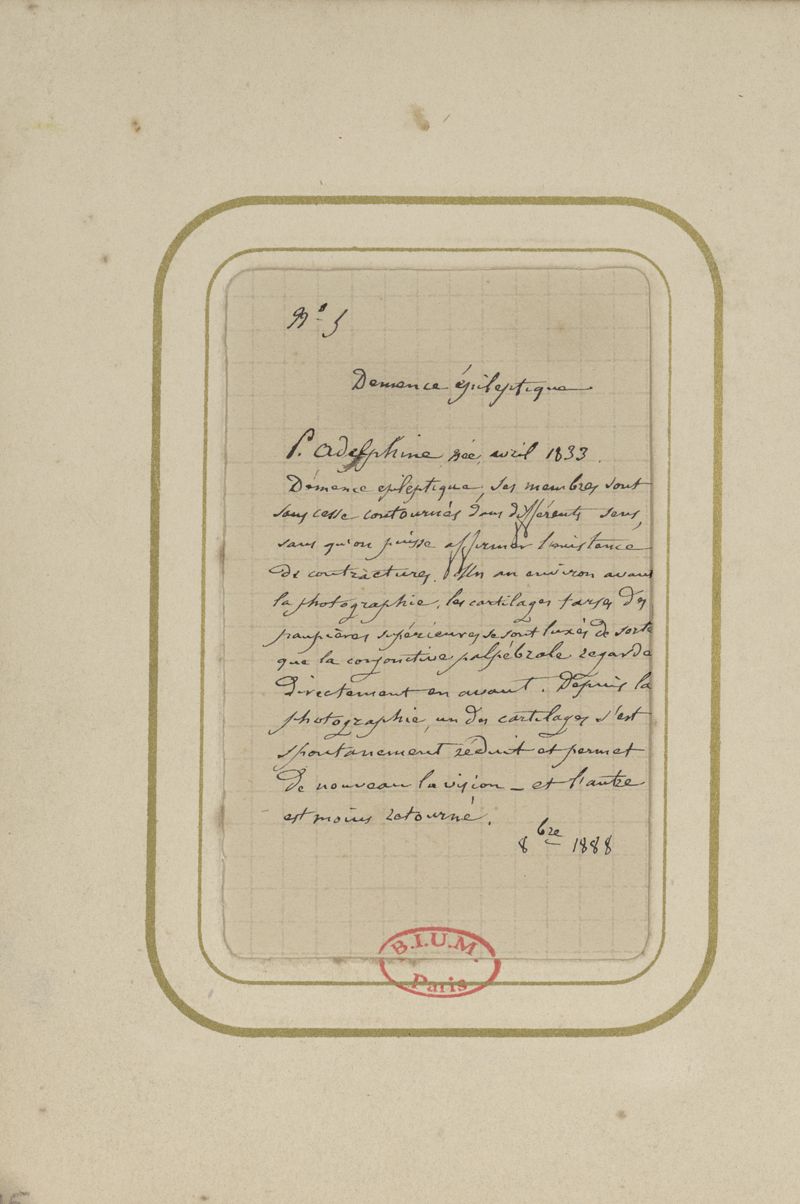 No 5
Demence épileptique
P. Adelphine née avril 1833.
Démence epileptique, ses membres sont
sans cesse contournés dans différents sens,
sans qu'on puisse affirmer l'existence
de contractures. Un an environ avant
la photographie, les cartilages tarses des
paupières supérieures se sont luxés de sorte
que la conjonctive palpébrale regarde
directement en avant. Depuis la
photographie, un des cartilages s'est
spontanement réduit et permet
de nouveau la vision – et l'autre
est moins retourné.
8bre 1888
B.I.U.M.
Paris